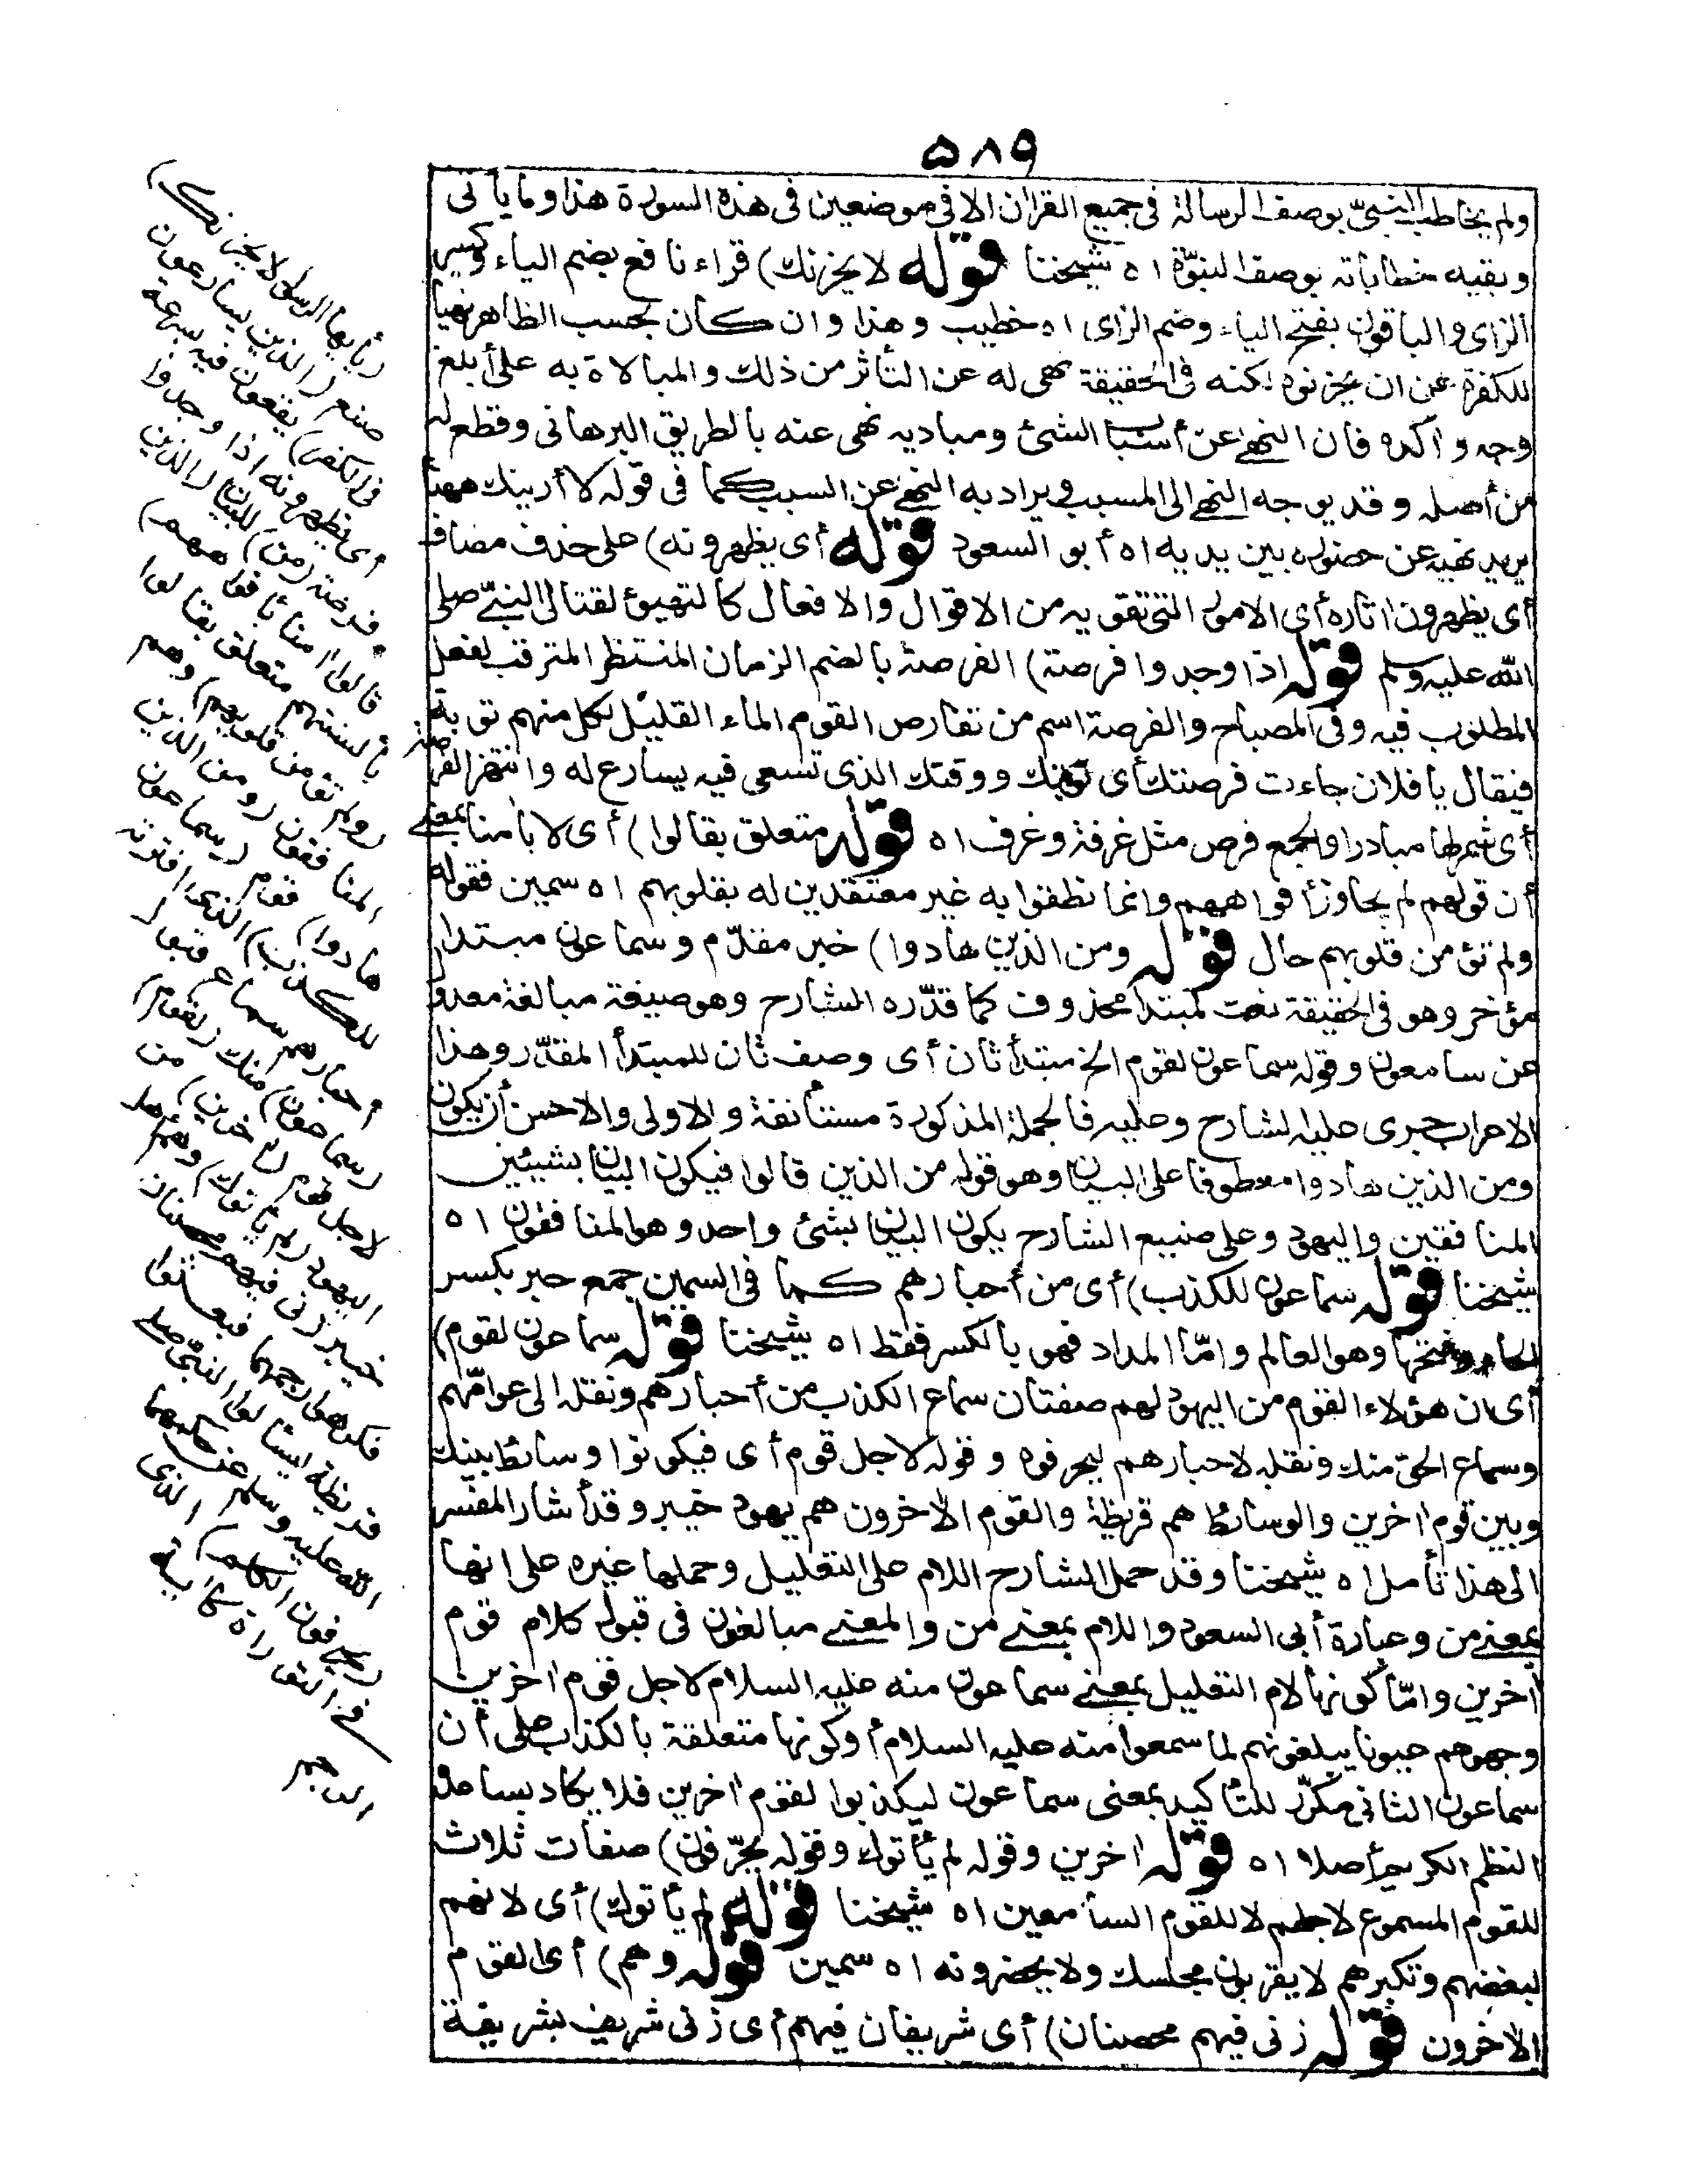 ٥٨٩
ولم يخاطب النبىّ بوصف الرسالة فى جميع القران الا فى موضعين فى هذه السورة هذا وما يأتى
وبقيه خطاباته بوصف النبوّة اه شيخنا قوله لا يحزنك) قراء نافع بضم الياء وكسر
الزاى والباقون بفتح الياء وضم الزاى اه خطيب وهذا وان كان بحسب الظاهر نهيا
للكفرة عن ان يحزنوه لكنه فى الحقيقة نهى له عن التأثر من ذلك والمبالاة به على أبلغ
وجه وآكده فان النهى عن أسباب الشئ ومباديه نهى عنه بالطريق البرهانى وقطع له
من أصله وقد يوجه النهى الى المسبب ويراد به النهى عن السبب كما فى قوله لا أرينك ههنا
يريد نهيه عن حضوره بين يديه اه أبو السعود قوله أى يظهرونه) على حذف مضاف
أى يظهرون اثاره أى الامور التى تقويه من الاقوال والافعال كالتهيؤ لقتال النبىّ صلى
الله عليه وسلم قوله اذا وجدوا فرصة) الفرصة بالضم الزمان المنتظر المترقب لفعل
المطلوب فيه وفى المصباح والفرصة اسم من تفارص القوم الماء القليل لكل منهم نوبة
فيقال يا فلان جاءت فرصتك أى نوبتك ووقتك الذى تسعى فيه يسارع له وانتهز الفرصة
أى شمر لها مبادرا والجمع فرص مثل غرفة وغرف اه قوله متعلق بقالوا) أى لا بامنا بمعنى
أن قولهم لم يجاوز أفواههم وانما نطقوا به غير معتقدين له بقلوبهم اه سمين فقوله
ولم تؤمن قلوبهم حال قوله ومن الذين هادوا) خبر مقدّم وسماعون مبتدا
مؤخر وهو فى الحقيقة نعت لمبتدا محذوف كما قدّره الشارح وهو صيغة مبالغة معدول
عن سامعون وقوله سماعون لقوم الخ مبتدأ ثان أى وصف ثان للمبتدأ المقدّر وهذا
الاعراب جرى عليه الشارح وعليه فالجملة المذكورة مستأنفة والاولى والاحسن أن يكون
ومن الذين هادوا معطوفا على البيان وهو قوله من الذين قالوا فيكون البيان بشيئين
المنافقين واليهود وعلى صنيع الشارح يكون البيان بشئ واحد وهو المنافقون اه
شيخنا قوله سماعون للكذب) أى من أحبارهم كما فى السمين جمع حبر بكسر
الحاء وفتحها وهو العالم وامّا المداد فهو بالكسر فقط اه شيخنا قوله سماعون لقوم)
أى ان هؤلاء القوم من اليهود لهم صفتان سماع الكذب من أحبارهم ونقله الى عوامّهم
وسماع الحق منك ونقله لاحبارهم ليحرفوه وقوله لاجل قوم أى فيكونوا وسائط بينك
وبين قوم اخرين والوسائط هم قريظة والقوم الاخرون هم يهود خيبر وقد أشار المفسر
الى هذا تأمل اه شيخنا وقد حمل الشارح اللام على التعليل وحملها غيره على انها
بمعنى من وعبارة أبى السعود واللام بمعنى من والمعنى مبالغون فى قبول كلام قوم
آخرين وامّا كونها لام التعليل بمعنى سماعون منه عليه السلام لاجل قوم اخرين
وجهوهم عيونا يبلغونهم لما سمعوا منه عليه السلام أو كونها متعلقة بالكذب على أن
سماعون الثانى مكرّر للتأكيد بمعنى سماعون ليكذبوا لقوم اخرين فلا يكاد يساعده
النظم الكريم أصلا اه قوله اخرين وقوله لم يأتوك وقوله يحرّفون) صفات ثلاث
للقوم المسموع لاجلهم لا للقوم السامعين اه شيخنا قوله لم يأتوك) أى لانهم
لبغضهم وتكبرهم لا يقربون مجلسك ولا يحضرونه اه سمين قوله وهم) أى القوم
الاخرون قوله زنى فيهم محصنان) أى شريفان فيهم أى زنى شريف بشريفة
(يأيها الرسول لا يحزنك)
صنع (الذين يسارعون
فى الكفر) يقعون فيه بسرعة
أى يظهرونه اذا وجدوا
فرصة (من) للبيان (الذين
قالوا امنا بأفواههم)
بألسنتهم متعلق بقالوا
(ولم تؤمن قلوبهم) وهم
المنافقون (ومن الذين
هادوا) قوم (سماعون
للكذب) الذى افترته
أحبارهم سماع قبول
(سماعون) منك (لقوم)
لاجل قوم (اخرين) من
اليهود (لم يأتوك) وهم أهل
خيبر زنى فيهم محصنان
فكرهوا رجمهما فبعثوا
قريظة ليسألوا النبىّ صلى
الله عليه وسلم عن حكمهما
(يحرفون الكلم) الذى
فى التوراة كآية
الرجم